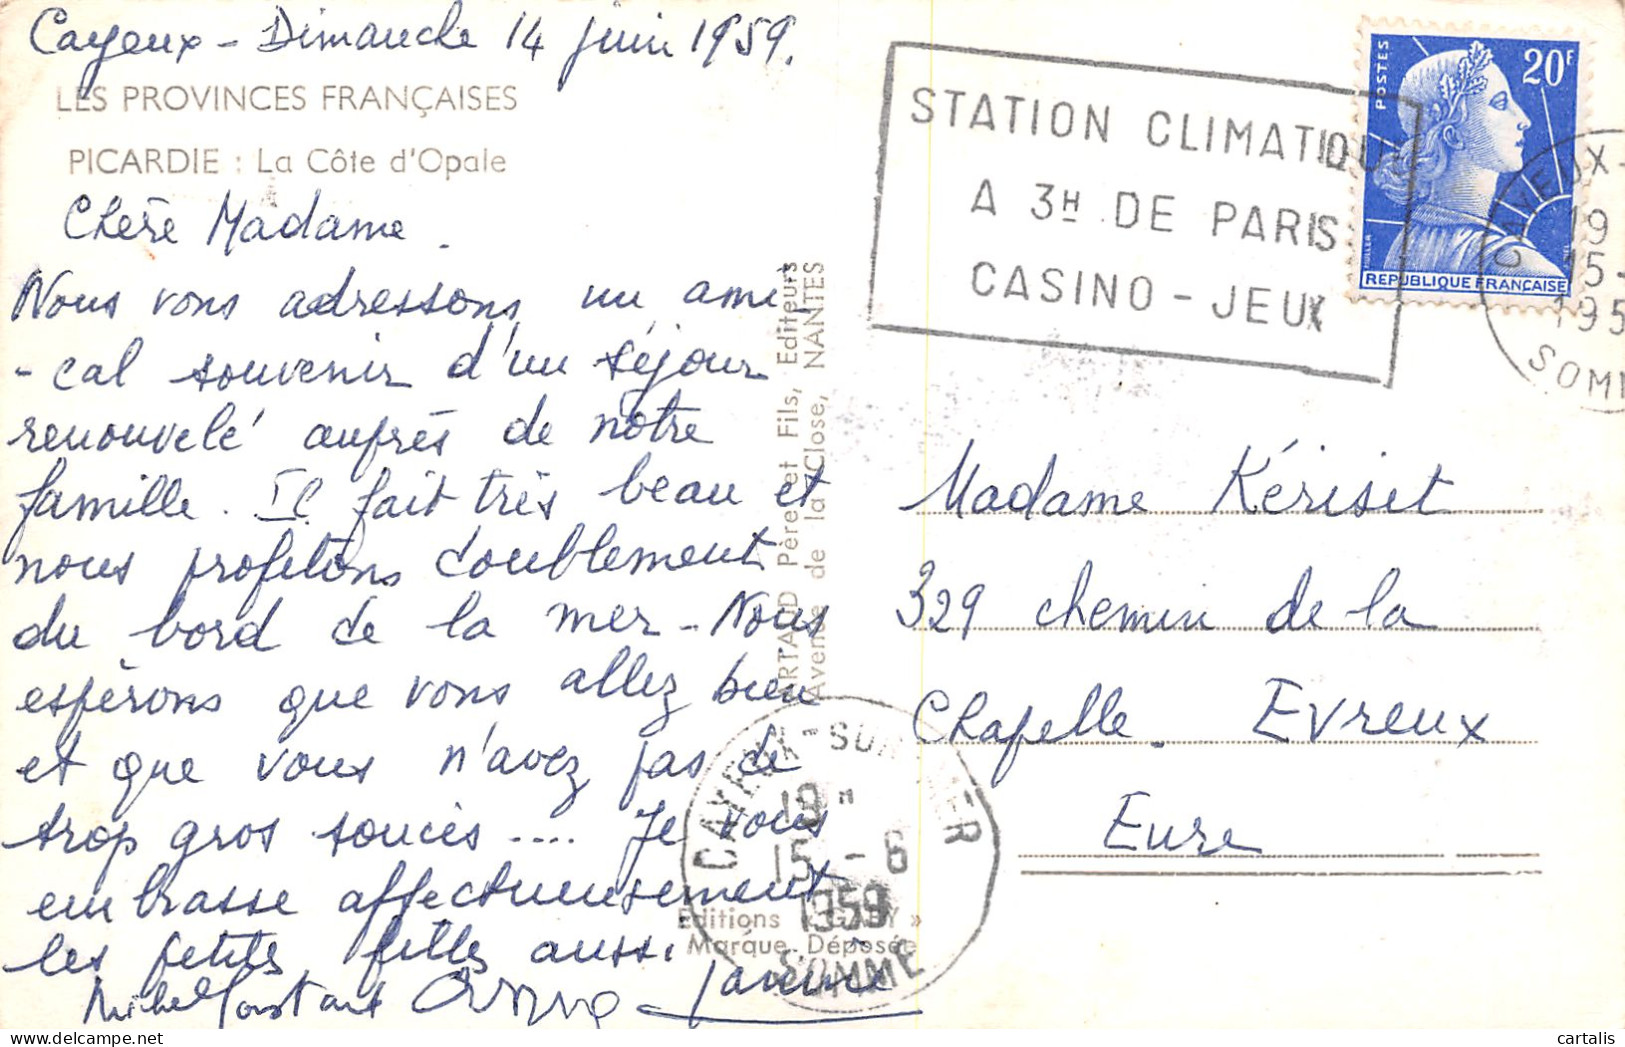 Cayeux - Dimanche 14 juin 1959.
LES PROVINCES FRANÇAISES
PICARDIE : La Côte d'Opale
Chère Madame.
Nous vous adressons un ami
-cal souvenir d'un séjour
renouvelé auprès de notre
famille. Il fait très beau et
nous profitons doublement
du bord de la mer - Nous
espérons que vous allez bien
et que vous n'avez pas de
trop gros soucis .... Je vous
embrasse affectueusement
les petites filles aussi.
Michel Constant
Janine
ARTAUD Père et Fils, Editeurs
Avenue de la Close, NANTES
Editions « GABY »
Marque Déposée
CAYEUX-SUR-MER
19 H
15 - 6
1959
SOMME
STATION CLIMATIQUE
A 3H DE PARIS
CASINO - JEUX
POSTES
20F
MULLER
REPUBLIQUE FRANÇAISE
CAYEUX-
19
15-
195
SOMM
Madame Kériset
329 chemin de la
Chapelle. Evreux
Eure
cartalis